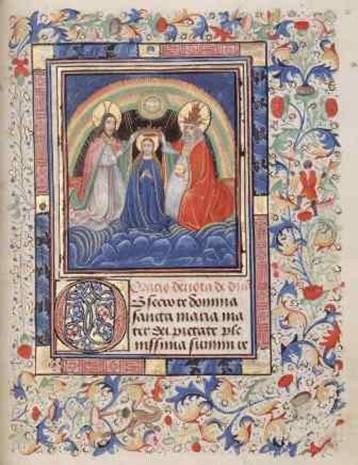 Oracio deuota de
Obsecro te domina
sancta maria ma
ter dei pietate ple
nissima summi re